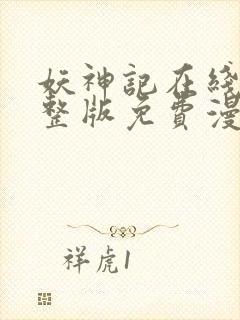 妖神記在綫
整版免費漫
祥虎1